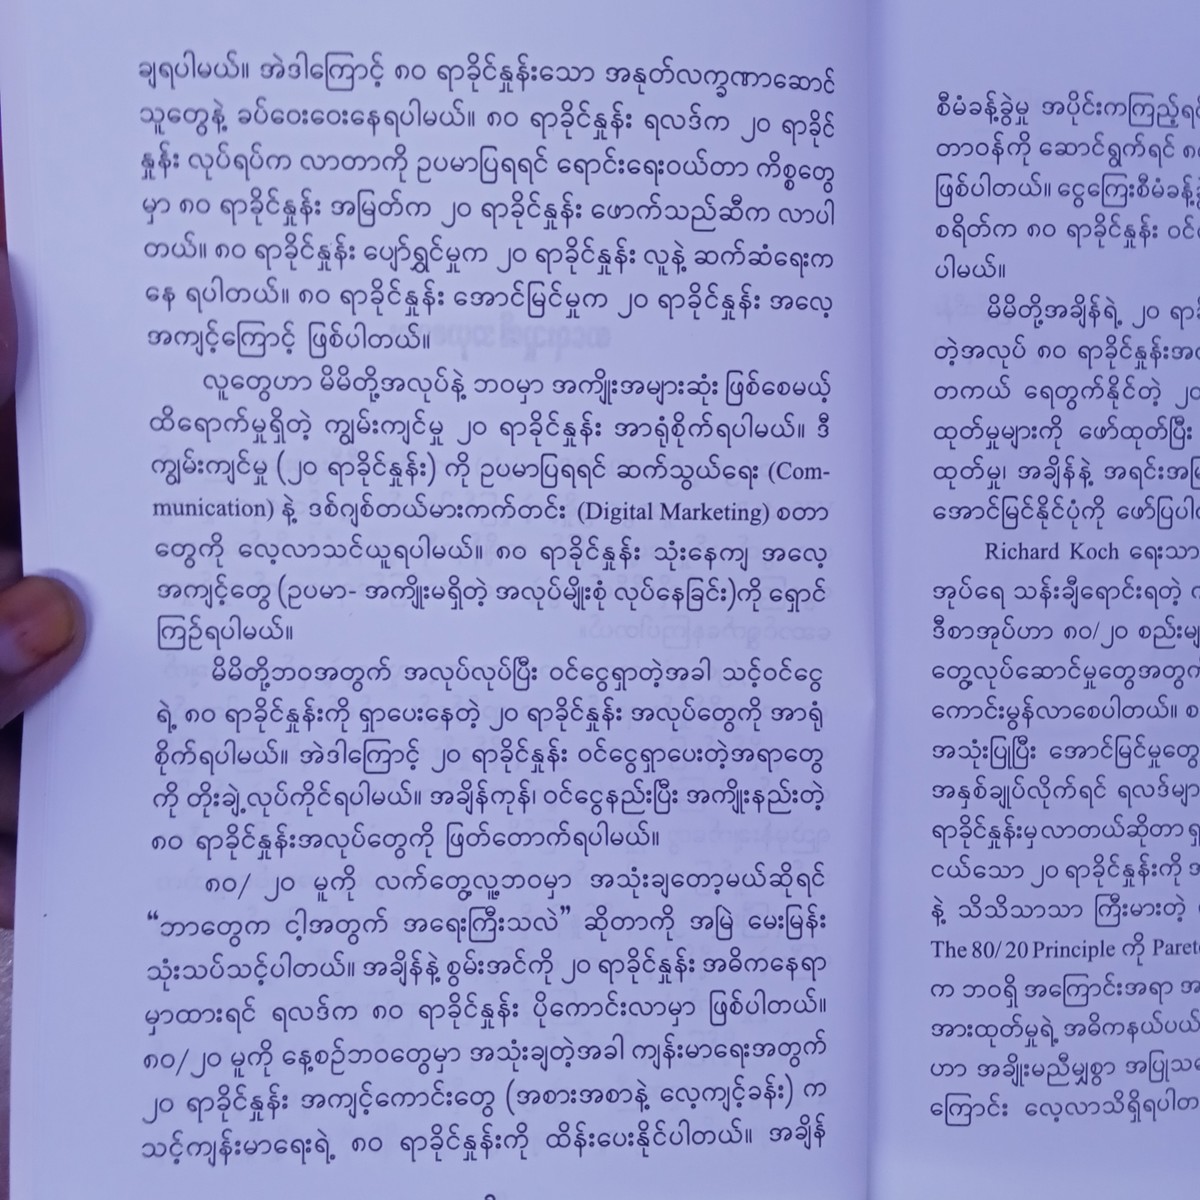 ချရပါမယ်။ အဲဒါကြောင့် ၈၀ ရာခိုင်နှုန်းသော အနုတ်လက္ခဏာဆောင်
သူတွေနဲ့ ခပ်ဝေးဝေးနေရပါမယ်။ ၈၀ ရာခိုင်နှုန်း ရလဒ်က ၂၀ ရာခိုင်
နှုန်း လုပ်ရပ်က လာတာကို ဥပမာပြရရင် ရောင်းရေးဝယ်တာ ကိစ္စတွေ
မှာ ၈၀ ရာခိုင်နှုန်း အမြတ်က ၂၀ ရာခိုင်နှုန်း ဖောက်သည်ဆီက လာပါ
တယ်။ ၈၀ ရာခိုင်နှုန်း ပျော်ရွှင်မှုက ၂၀ ရာခိုင်နှုန်း လူနဲ့ ဆက်ဆံရေးက
နေ ရပါတယ်။ ၈၀ ရာခိုင်နှုန်း အောင်မြင်မှုက ၂၀ ရာခိုင်နှုန်း အလေ့
အကျင့်ကြောင့် ဖြစ်ပါတယ်။
လူတွေဟာ မိမိတို့အလုပ်နဲ့ ဘဝမှာ အကျိုးအများဆုံး ဖြစ်စေမယ့်
ထိရောက်မှုရှိတဲ့ ကျွမ်းကျင်မှု ၂၀ ရာခိုင်နှုန်း အာရုံစိုက်ရပါမယ်။ ဒီ
ကျွမ်းကျင်မှု (၂၀ ရာခိုင်နှုန်း) ကို ဥပမာပြရရင် ဆက်သွယ်ရေး (Com-
munication) နဲ့ ဒစ်ဂျစ်တယ်မားကက်တင်း (Digital Marketing) စတာ
တွေကို လေ့လာသင်ယူရပါမယ်။ ၈၀ ရာခိုင်နှုန်း သုံးနေကျ အလေ့
အကျင့်တွေ (ဥပမာ- အကျိုးမရှိတဲ့ အလုပ်မျိုးစုံ လုပ်နေခြင်း)ကို ရှောင်
ကြဉ်ရပါမယ်။
မိမိတို့ဘဝအတွက် အလုပ်လုပ်ပြီး ဝင်ငွေရှာတဲ့အခါ သင့်ဝင်ငွေ
ရဲ့ ၈၀ ရာခိုင်နှုန်းကို ရှာပေးနေတဲ့ ၂၀ ရာခိုင်နှုန်း အလုပ်တွေကို အာရုံ
စိုက်ရပါမယ်။ အဲဒါကြောင့် ၂၀ ရာခိုင်နှုန်း ဝင်ငွေရှာပေးတဲ့အရာတွေ
ကို တိုးချဲ့လုပ်ကိုင်ရပါမယ်။ အချိန်ကုန်၊ ဝင်ငွေနည်းပြီး အကျိုးနည်းတဲ့
၈၀ ရာခိုင်နှုန်းအလုပ်တွေကို ဖြတ်တောက်ရပါမယ်။
၈၀/ ၂၀ မူကို လက်တွေ့လူ့ဘဝမှာ အသုံးချတော့မယ်ဆိုရင်
“ဘာတွေက ငါ့အတွက် အရေးကြီးသလဲ” ဆိုတာကို အမြဲ မေးမြန်း
သုံးသပ်သင့်ပါတယ်။ အချိန်နဲ့ စွမ်းအင်ကို ၂၀ ရာခိုင်နှုန်း အဓိကနေရာ
မှာထားရင် ရလဒ်က ၈၀ ရာခိုင်နှုန်း ပိုကောင်းလာမှာ ဖြစ်ပါတယ်။
၈၀/၂၀ မူကို နေ့စဉ်ဘဝတွေမှာ အသုံးချတဲ့အခါ ကျန်းမာရေးအတွက်
၂၀ ရာခိုင်နှုန်း အကျင့်ကောင်းတွေ (အစားအစာနဲ့ လေ့ကျင့်ခန်း) က
သင့်ကျန်းမာရေးရဲ့ ၈၀ ရာခိုင်နှုန်းကို ထိန်းပေးနိုင်ပါတယ်။ အချိန်
စီမံခန့်ခွဲမှု အပိုင်းကကြည့်ရ
တာဝန်ကို ဆောင်ရွက်ရင်
ဖြစ်ပါတယ်။ ငွေကြေးစီမံခန့်
စရိတ်က ၈၀ ရာခိုင်နှုန်း
ပါမယ်။
မိမိတို့အချိန်ရဲ့ ၂၀
တဲ့အလုပ် ၈၀ ရာခိုင်နှုန်း
တကယ် ရေတွက်နိုင်တဲ့
ထုတ်မှုများကို ဖော်ထုတ်ပြီး
ထုတ်မှု၊ အချိန်နဲ့
အောင်မြင်နိုင်ပုံကို ဖော်ပြပါ
Richard Koch ရေးသာ
အုပ်ရေ သန်းချီရောင်းရတဲ့
ဒီစာအုပ်ဟာ ၈၀/၂၀ စည်းမျ
တွေ့လုပ်ဆောင်မှုတွေအတွက်
ကောင်းမွန်လာစေပါတယ်။ စ
အသုံးပြုပြီး အောင်မြင်မှုတွေ
အနှစ်ချုပ်လိုက်ရင် ရလဒ်မျာ
ရာခိုင်နှုန်းမှ လာတယ်ဆိုတာ
ငယ်သော ၂၀ ရာခိုင်နှုန်းကို
နဲ့ သိသိသာသာ ကြီးမားတဲ့
The 80/ 20 Principle ကို Pareto
က ဘဝရှိ အကြောင်းအရာ
အားထုတ်မှုရဲ့ အဓိကနယ်ပယ်
ဟာ အချိုးမညီမျှစွာ
ကြောင်း လေ့လာသိရှိရပါတ